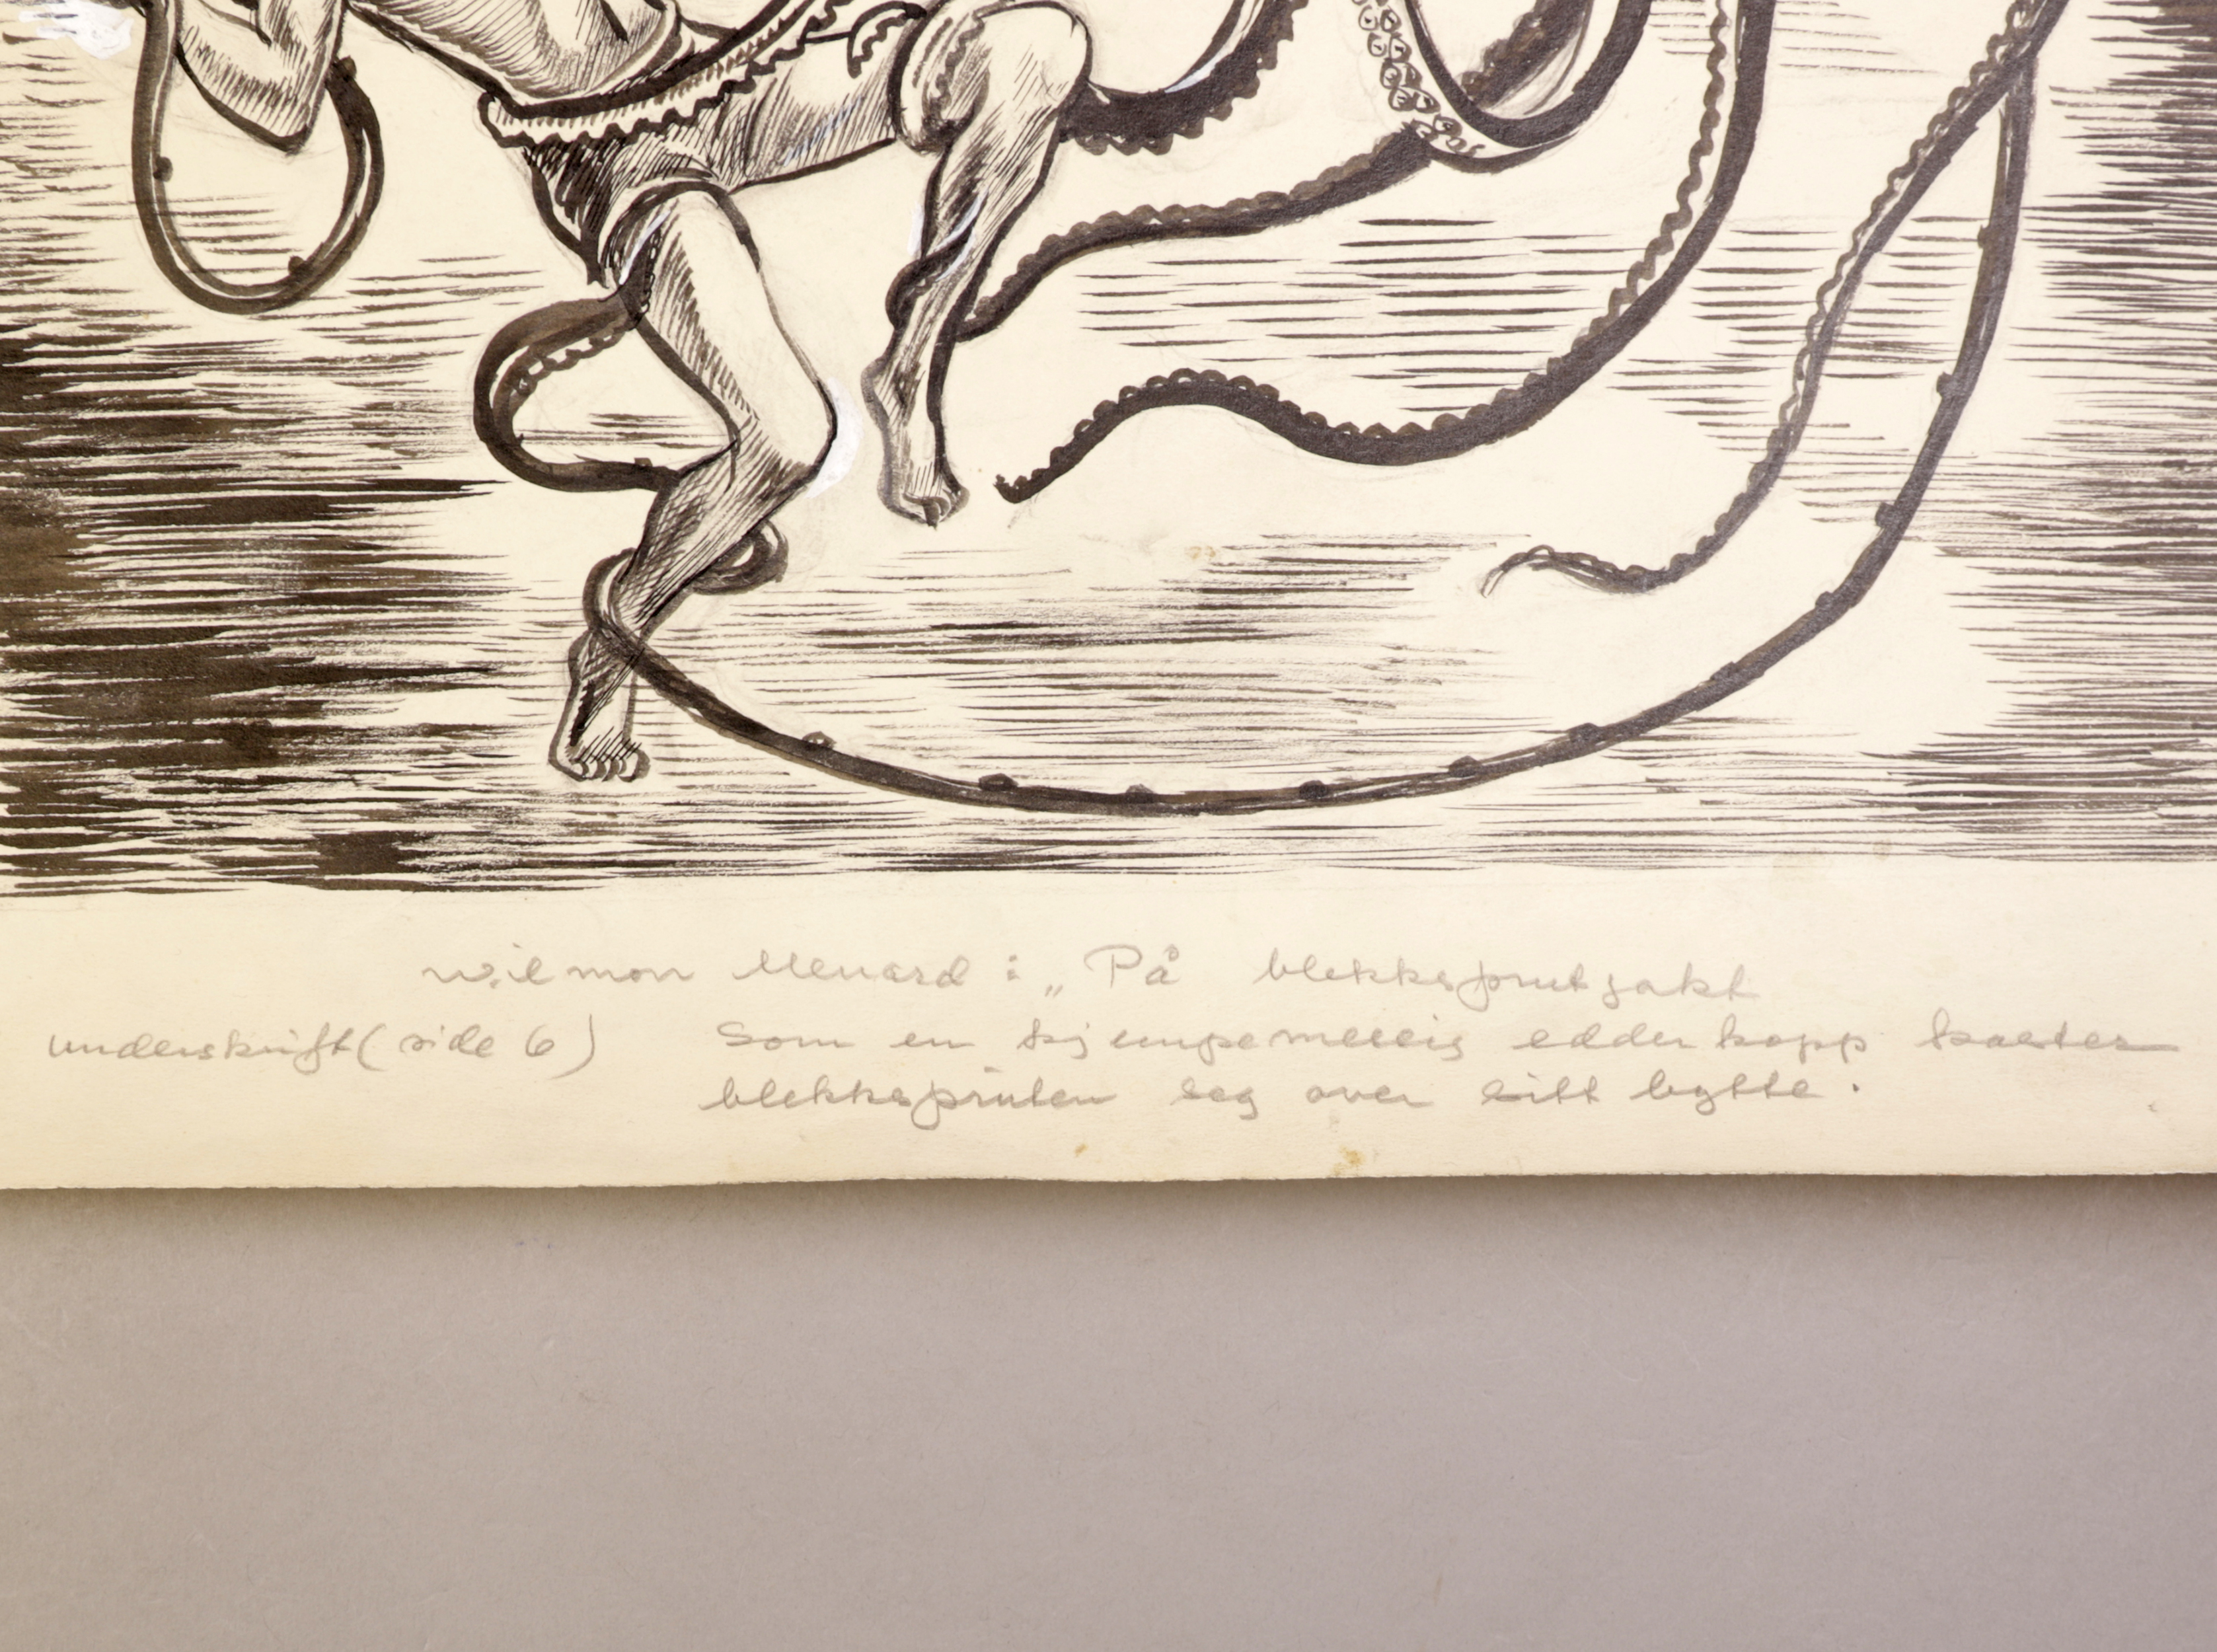 Wilmon Menard : „På blekksprutjakt
underskrift (side 6) Som en kjempemessig edderkopp kaster
blekkspruten seg over sitt bytte.